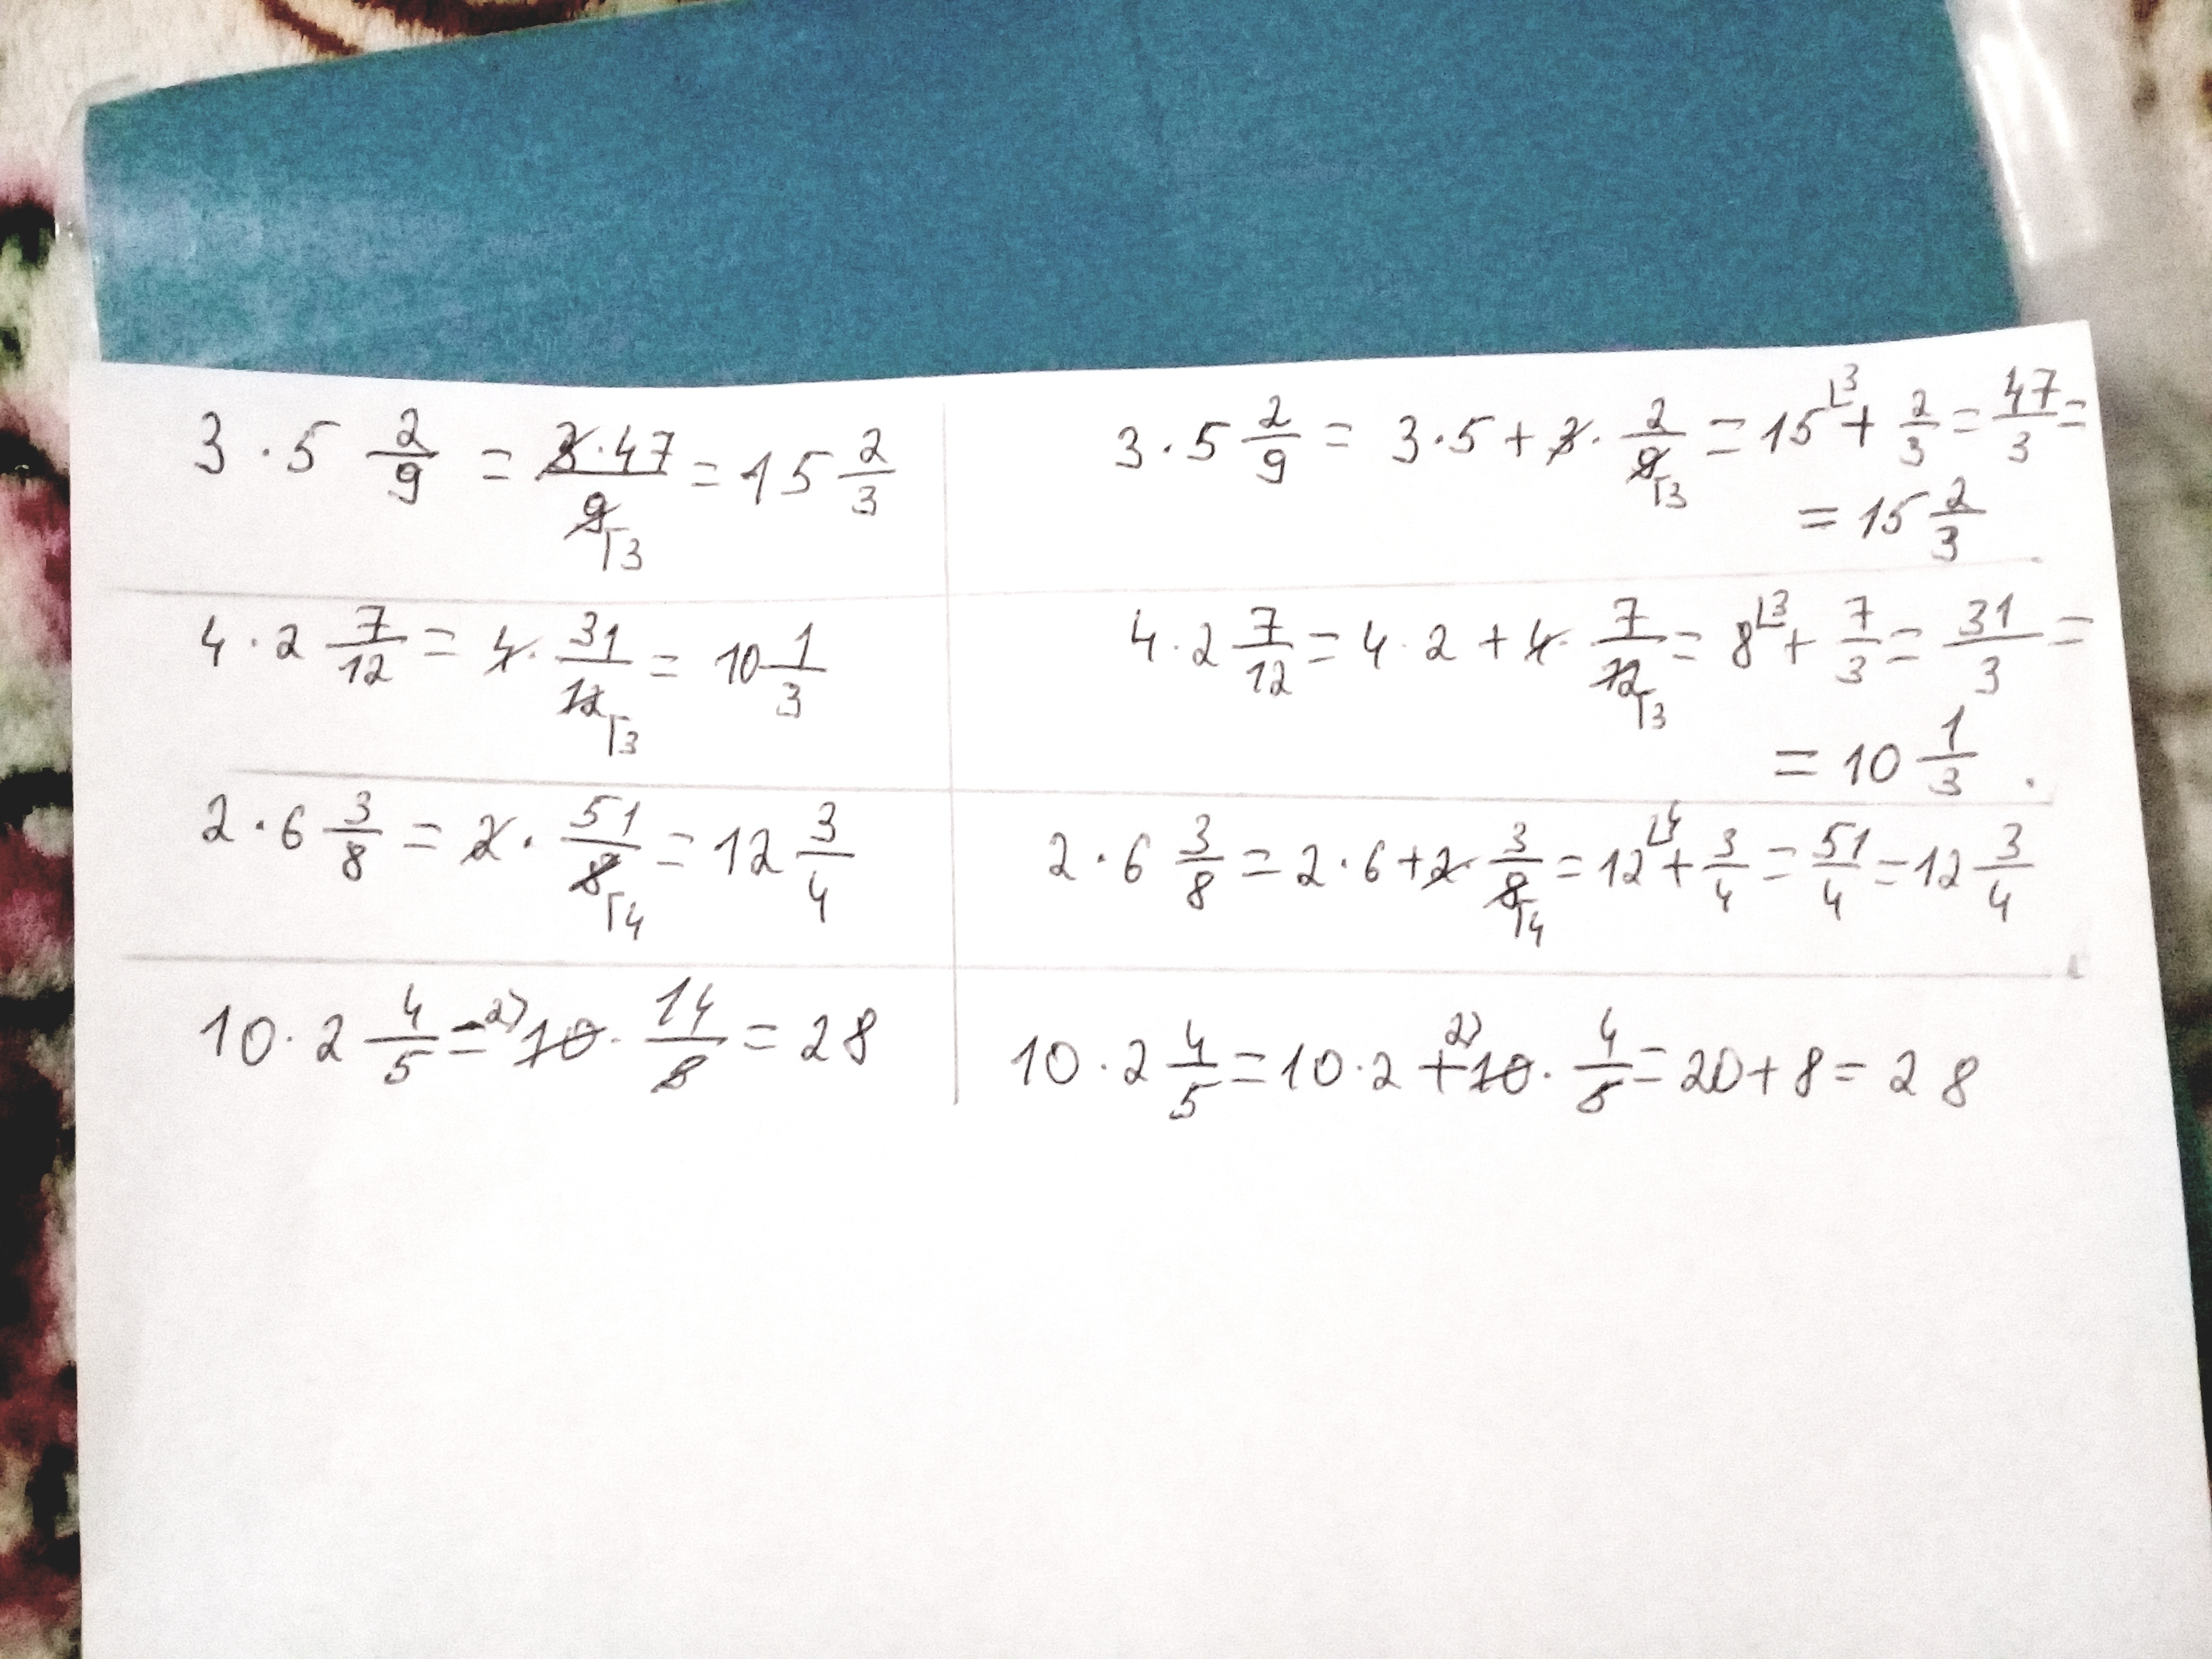 3 · 5 2/9 = 3·47/9 3 = 15 2/3
3 · 5 2/9 = 3·5 + 3 · 2/9 3 = 15 3 + 2/3 = 47/3 =
= 15 2/3
4 · 2 7/12 = 4 · 31/12 3 = 10 1/3
4 · 2 7/12 = 4 · 2 + 4 · 7/12 3 = 8 3 + 7/3 = 31/3 =
= 10 1/3 .
2 · 6 3/8 = 2 · 51/8 4 = 12 3/4
2 · 6 3/8 = 2 · 6 + 2 · 3/8 4 = 12 4 + 3/4 = 51/4 = 12 3/4
10 · 2 4/5 = 2) 10 · 14/5 = 28
10 · 2 4/5 = 10 · 2 + 2) 10 · 4/5 = 20 + 8 = 28